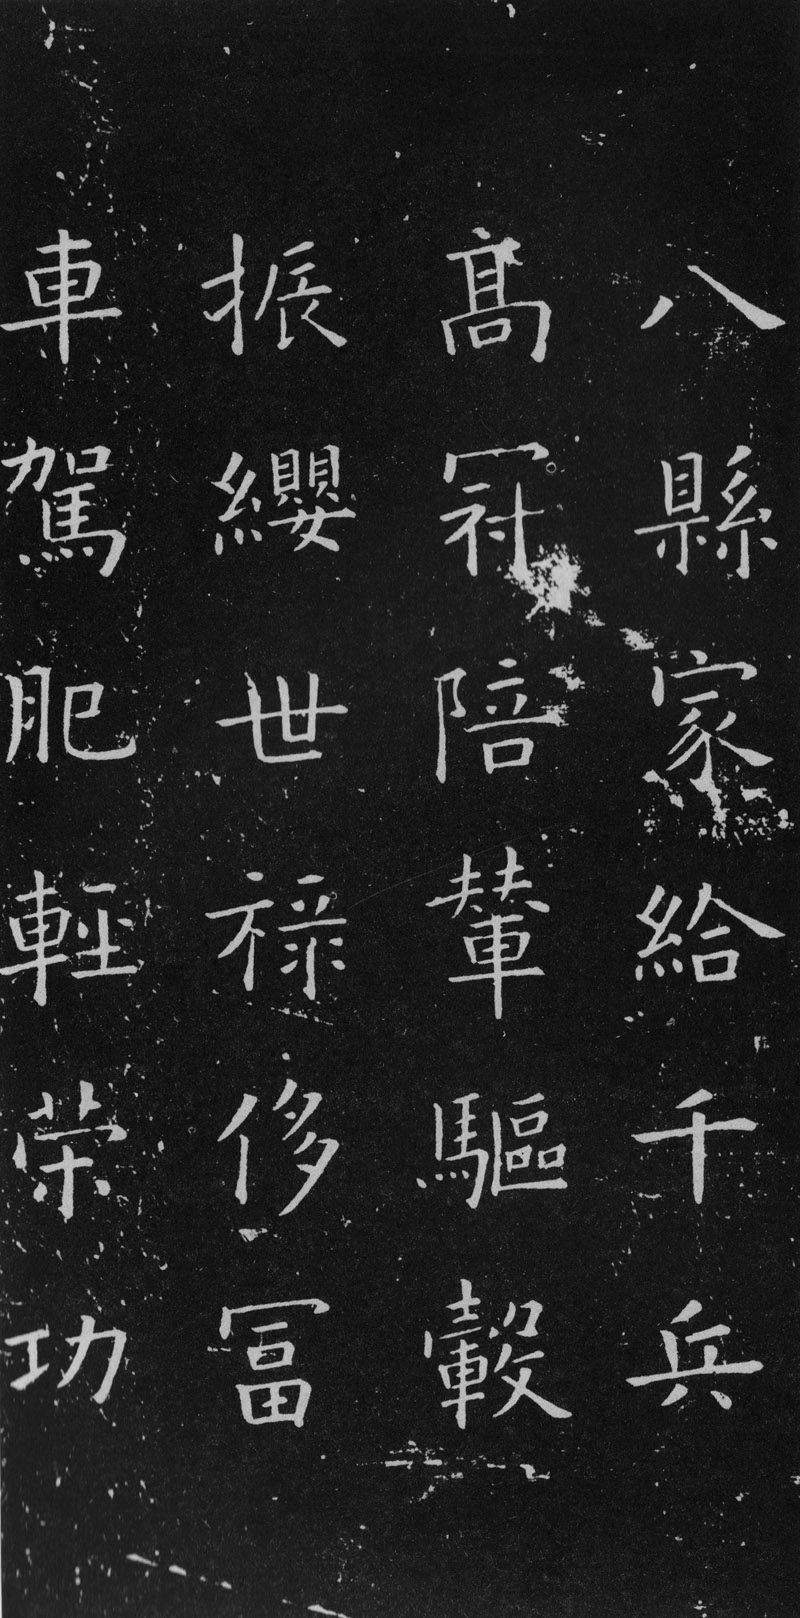 八縣家給千兵
髙冠陪輦驅轂
振纓世禄侈冨
車駕肥輕荣功